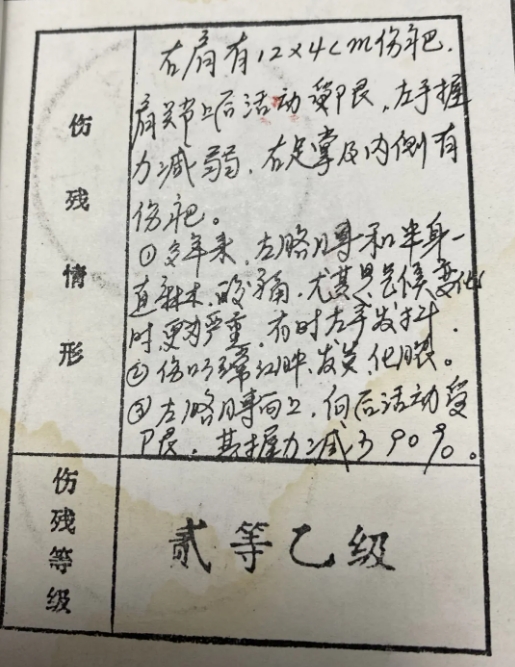 伤残情形
右肩有12×4cm伤疤.
肩关节上后活动受限,左手握
力减弱,右足掌及内侧有
伤疤。
①多年来,左胳膊和半身一
直麻木、酸痛,尤其是气候变化
时更为严重,有时左手发抖.
②伤口经常红肿、发炎、化脓。
③左胳膊向上,向后活动受
限,其握力减了90%。
伤残等级
贰等乙级